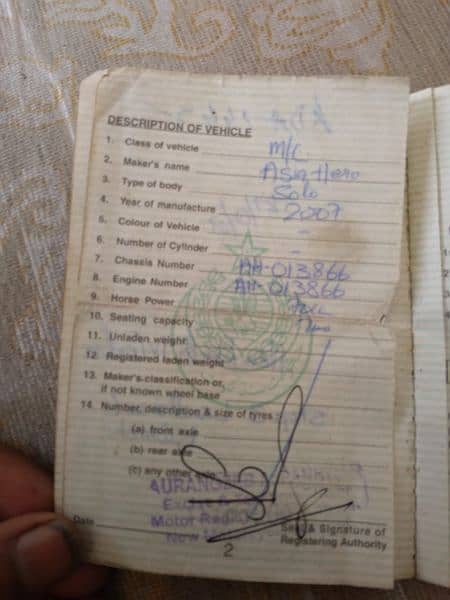 DESCRIPTION OF VEHICLE
1. Class of vehicle M/C
2. Maker's name Asia Hero
3. Type of body Solo
4. Year of manufacture 2007
5. Colour of Vehicle -
6. Number of Cylinder -
7. Chassis Number AH-013866
8. Engine Number AH-013866
9. Horse Power 70cc
10. Seating capacity Two
11. Unladen weight
12. Registered laden weight
13. Maker's classification or,
if not known wheel base
14. Number, description & size of tyres
(a) front axle
(b) rear axle
(c) any other
AURANG
Motor
Date
Seal & Signature of
Registering Authority
2